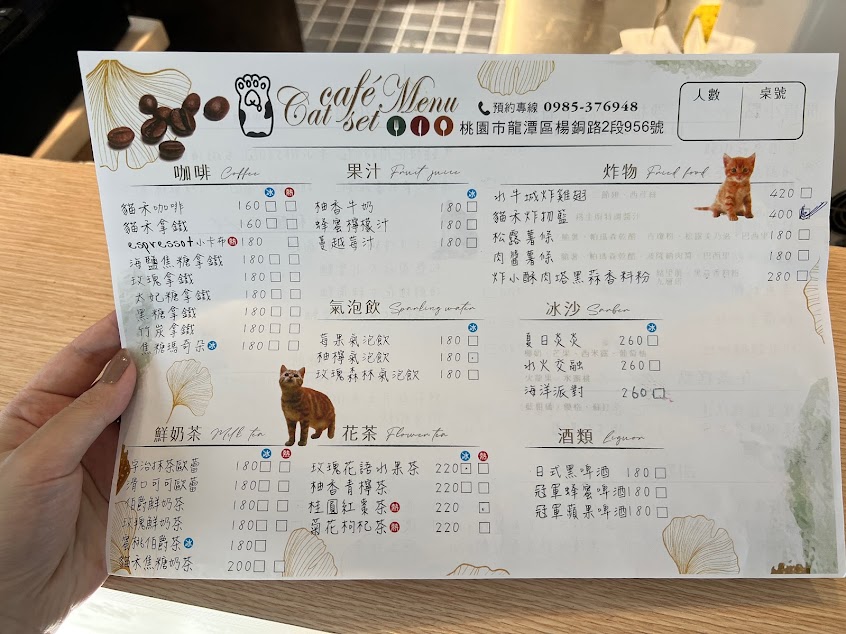 café Menu
Cat set
預約專線 0985-376948
桃園市龍潭區楊銅路2段956號
人數 桌號
咖啡 Coffee
冰 熱
貓禾咖啡 160
貓禾拿鐵 160
espresso+小卡布 熱 180
海鹽焦糖拿鐵 180
玫瑰拿鐵 180
太妃糖拿鐵 180
黑糖拿鐵 180
竹炭拿鐵 180
焦糖瑪奇朵 冰 180
果汁 Fruit juice
冰
柚香牛奶 180
蜂蜜檸檬汁 180
蔓越莓汁 180
氣泡飲 Sparkling water
冰
莓果氣泡飲 180
柚檸氣泡飲 180
玫瑰森林氣泡飲 180
炸物 Fried food
水牛城炸雞翅 420
貓禾炸物籃 400
松露薯條 180
肉醬薯條 180
炸小酥肉塔黑蒜香料粉 280
冰沙
冰
夏日炎炎 260
水火交融 260
海洋派對 260
鮮奶茶 Milk tea
冰 熱
宇治抹茶歐蕾 180
滑口可可歐蕾 180
伯爵鮮奶茶 180
玫瑰鮮奶茶 180
蜜桃伯爵茶 冰 180
貓禾焦糖奶茶 200
花茶 Flower tea
冰 熱
玫瑰花語水果茶 220
柚香青檸茶 220
桂圓紅棗茶 熱 220
菊花枸杞茶 熱 220
酒類 liquor
日式黑啤酒 180
冠軍蜂蜜啤酒 180
冠軍蘋果啤酒 180